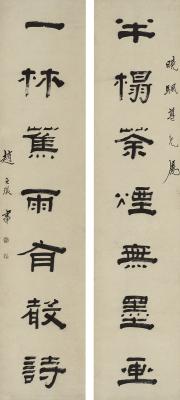 曉颿尊兄屬
半榻茶煙無墨画
一林蕉雨有殸詩
趙之琛書